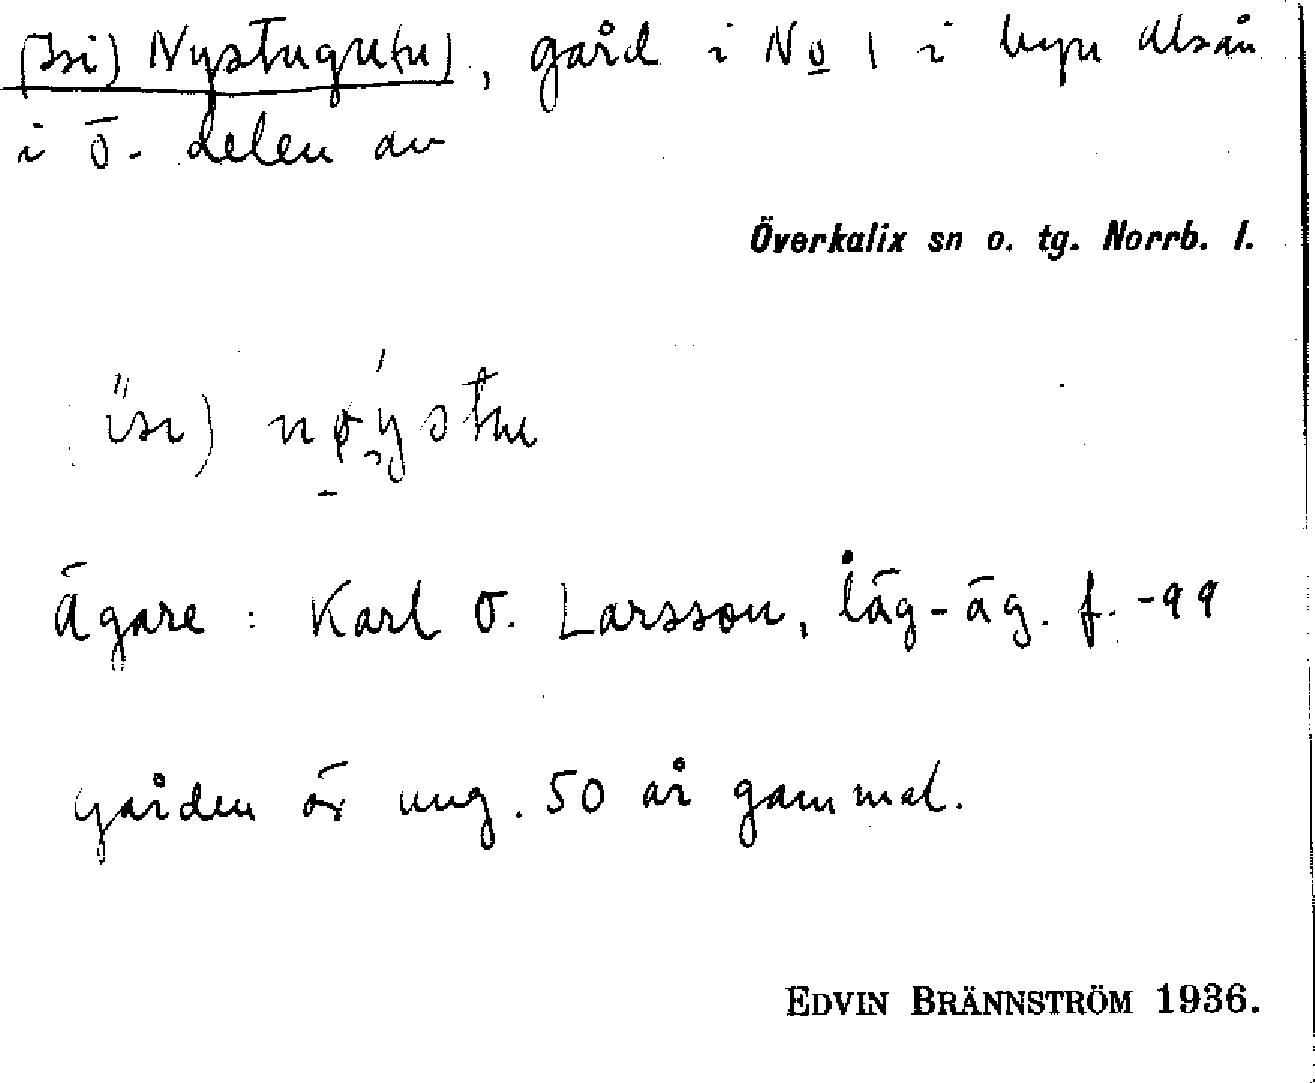 gård i No 1 i byn Alsån
i ö. delen av
Överkalix sn o. tg. Norrb. l.
Ägare: Karl O. Larsson, läg-äg. f. -99
gården är ung. 50 år gammal.
EDVIN BRÄNNSTRÖM 1936.